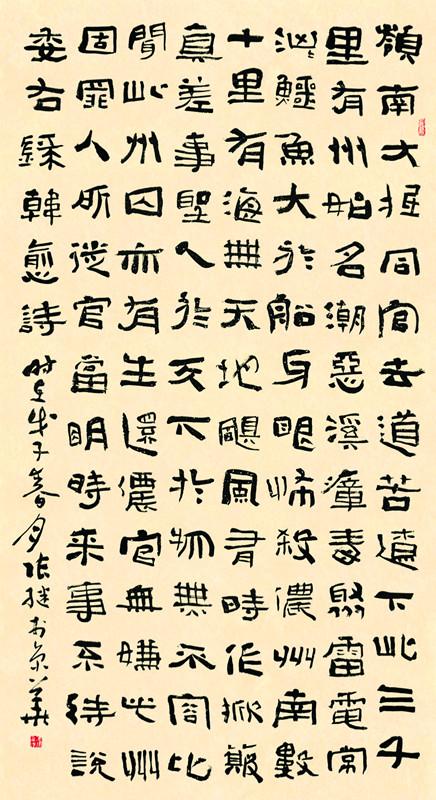 嶺南大抵同官去道苦遼下此三千
里有州始名潮惡溪瘴毒聚雷電常
洶鱷魚大於船牙眼怖殺儂州南數
十里有海無天地颶風有時作掀簸
真差事聖人於天下於物無不容比
聞此州囚亦有生還儂官無嫌此州
固罪人所徙官當明時來事不待說
委右錄韓愈詩時在戊子春月張繼於京華